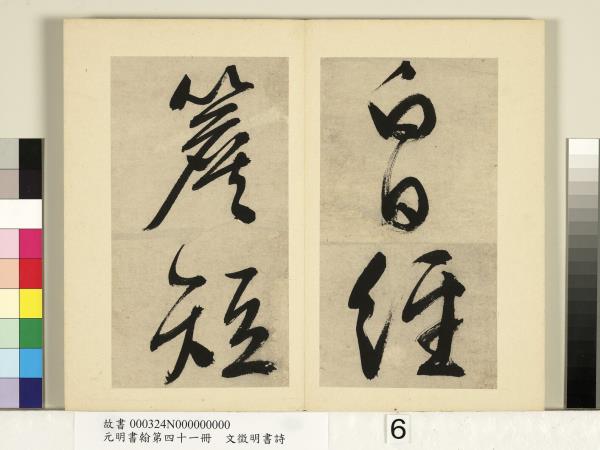 白日經
簷短
故書 000324N000000000
元明書翰第四十一冊 文徵明書詩
6